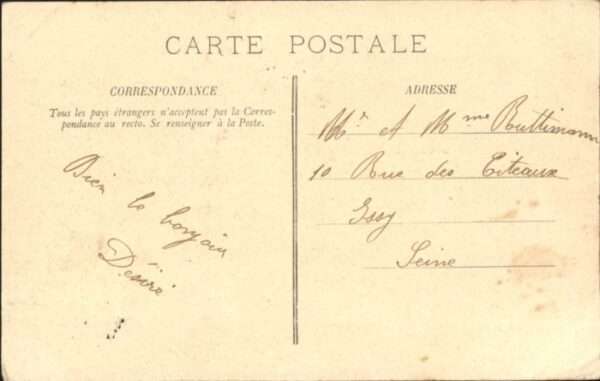 CARTE POSTALE
CORRESPONDANCE
Tous les pays étrangers n'acceptent pas la Corres-
pondance au recto. Se renseigner à la Poste.
Bien le bonjour
Désiré
ADRESSE
Mr et Mme Buttimann
10 Rue des Citeaux
Issy
Seine